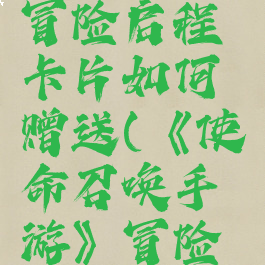 冒险启程
卡片如何
赠送(《使
命召唤手
游》冒险